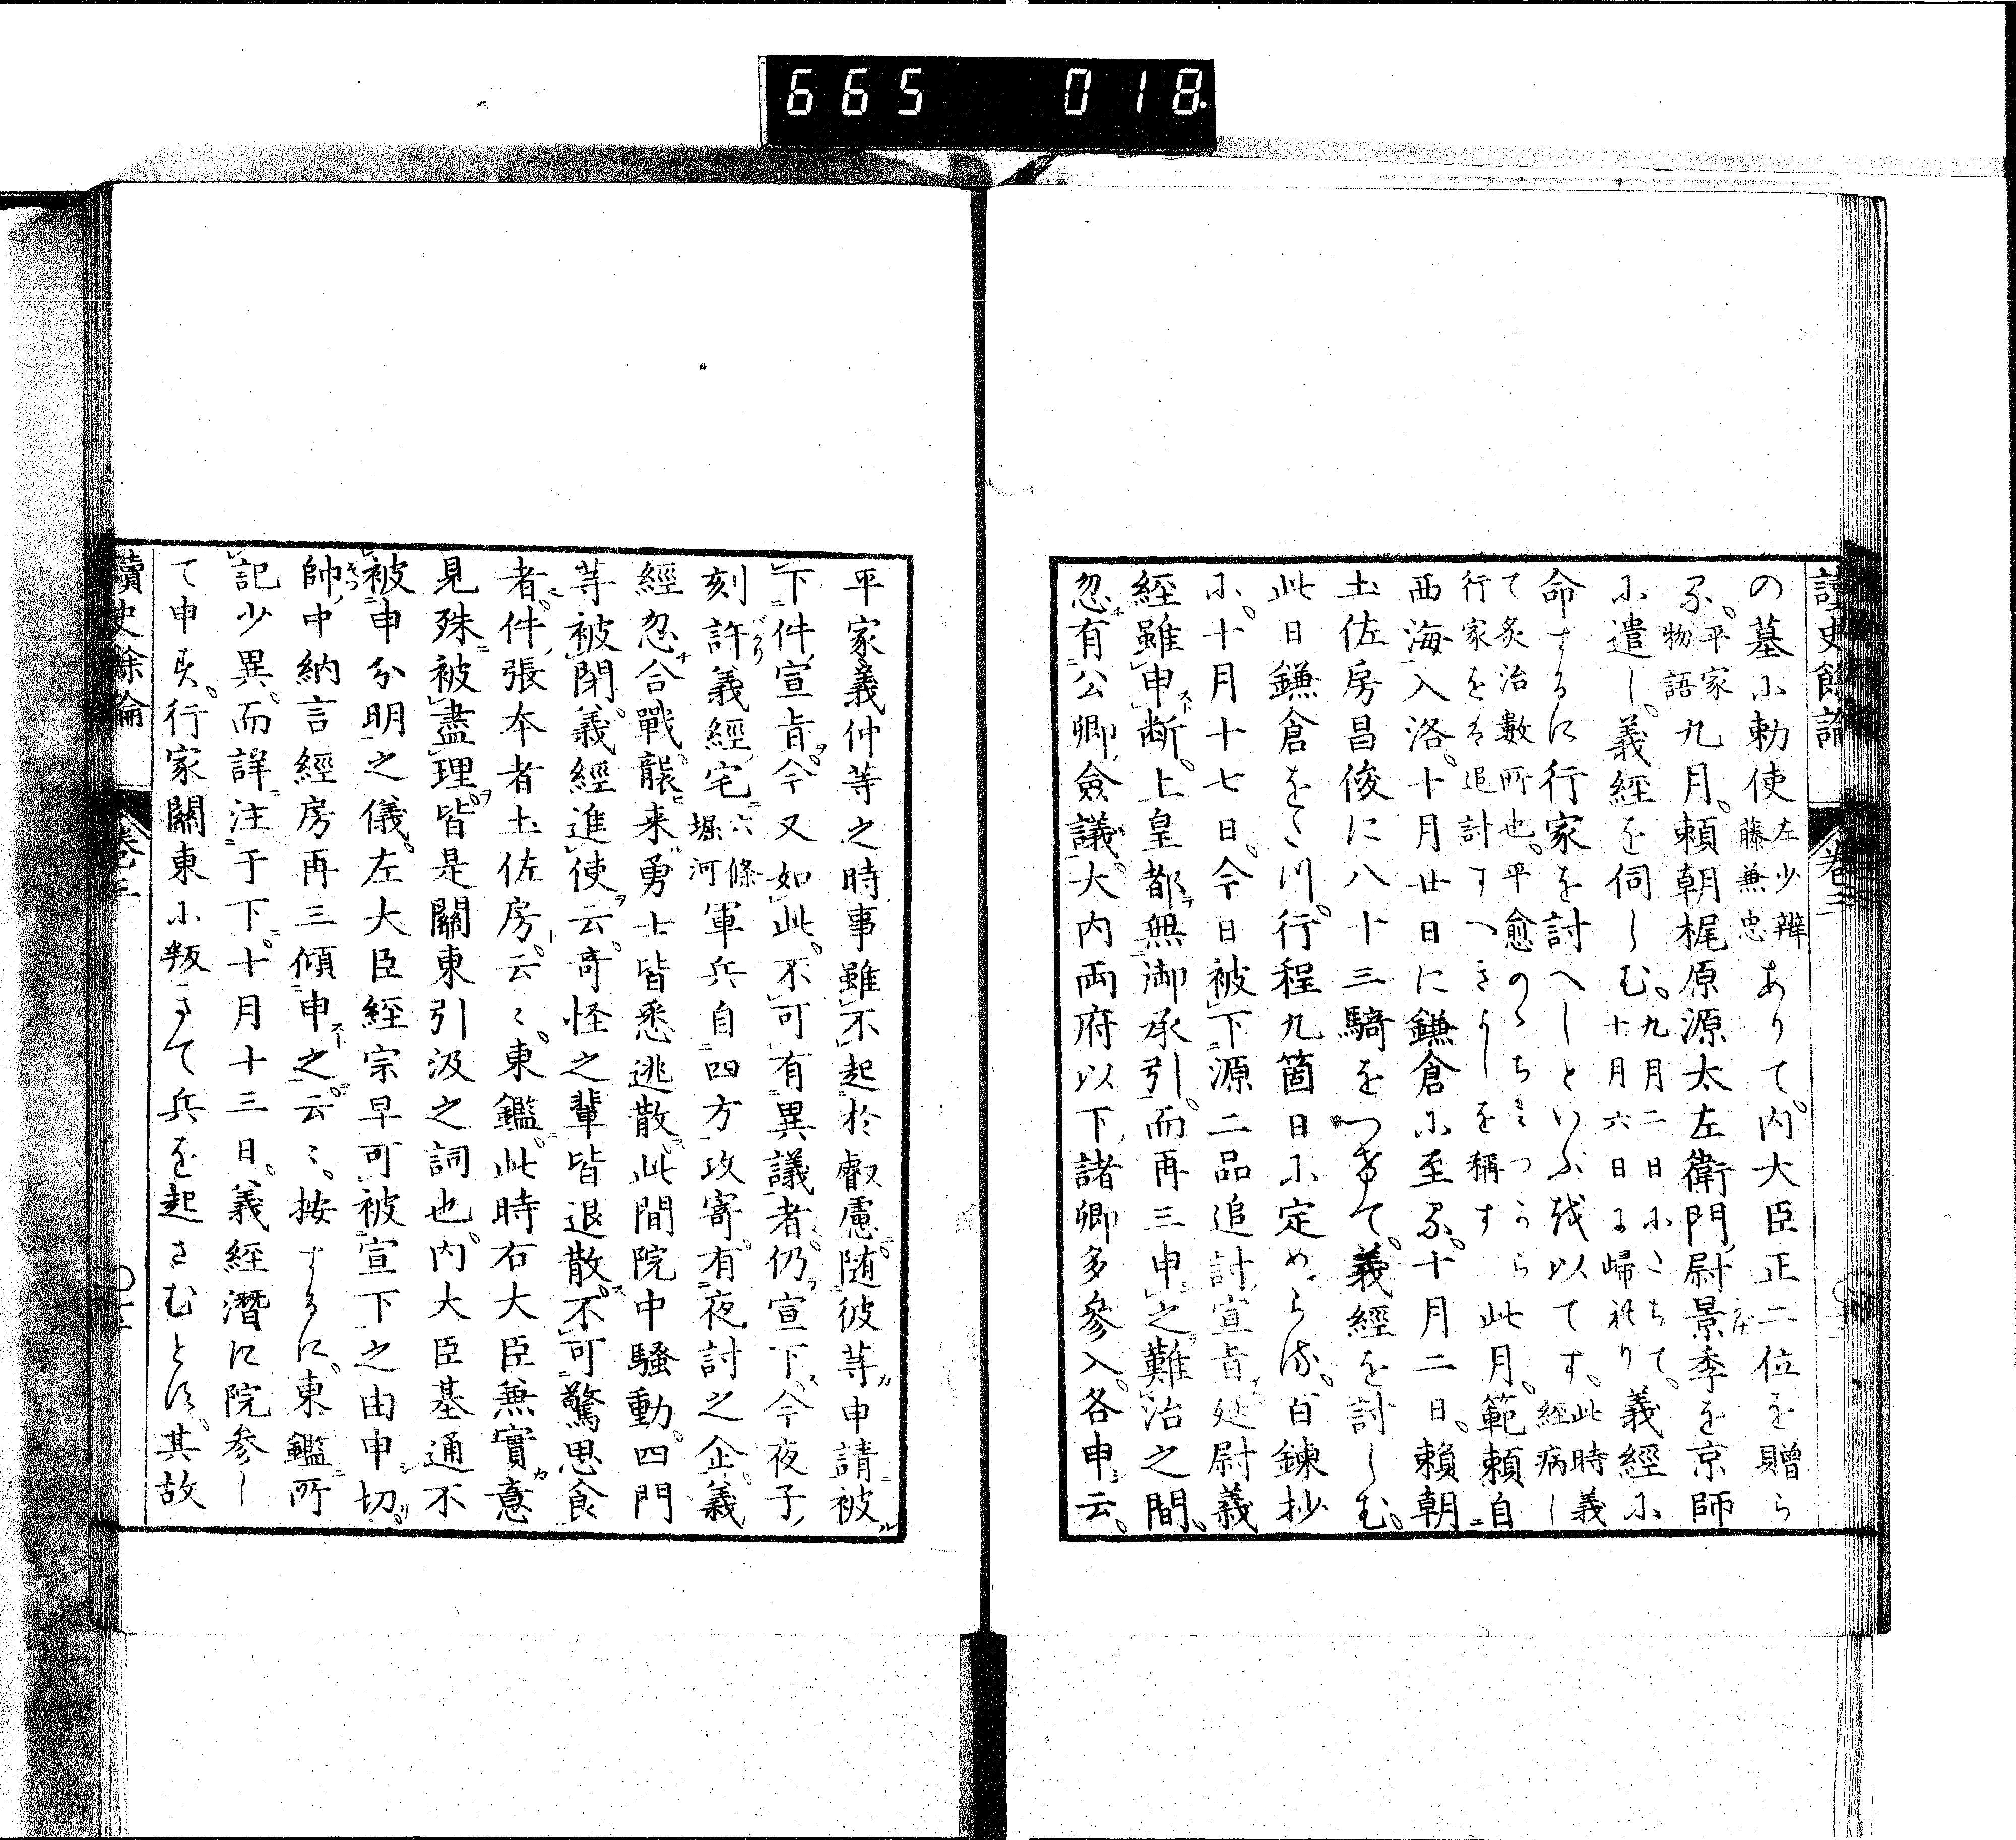 665 018
讀史餘論 卷三
の墓小勅使左少辨藤兼忠ありて。内大臣正二位を贈ら
る。平家物語九月。賴朝梶原源太左衛門尉景季を京師
小遣し。義經を伺しむ。九月二日小立ちて。十月六日に歸れり義經小
命するに行家を討へしといふ越以てす。此時義經病し
て炙治數所也。平愈のゝちミつから行家を追討すつきよしを稱す此月。範賴自
西海入洛。十月廿日に鎌倉小至る。十月二日。賴朝
土佐房昌俊に八十三騎をつけて。義經を討しむ。
此日鎌倉をたつ。行程九箇日小定めらる。百鍊抄
小。十月十七日。今日被下源二品追討宣旨。处尉義
經雖申斷。上皇都無御承引。而再三申之難治之間。
忽有公卿僉議。大内両府以下諸卿多參入。各申云。
平家義仲等之時事雖不起於叡慮。随彼等申請被
下件宣旨。今又如此。不可有異議者。仍宣下。今夜子
刻許義經宅六條堀河軍兵自四方攻寄。有夜討之企。義
經忽合戰襲来勇士皆悉逃散。此間院中騷動。四門
等被閉。義經進使云。奇怪之輩皆退散。不可驚思食
者。件張本者土佐房。云〻。東鑑。此時右大臣兼實意
見殊被盡理。皆是關東引汲之詞也。内大臣基通不
被申分明之儀。左大臣經宗早可被宣下之由申切。
帥中納言經房再三傾申之。云〻。按するに。東鑑所
記少異。而詳注于下。十月十三日。義經潛に院参し
て申す。行家關東小叛きて兵を起さむとす。其故
讀史餘論 卷三